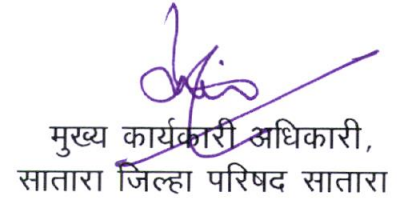 मुख्य कार्यकारी अधिकारी,
सातारा जिल्हा परिषद सातारा